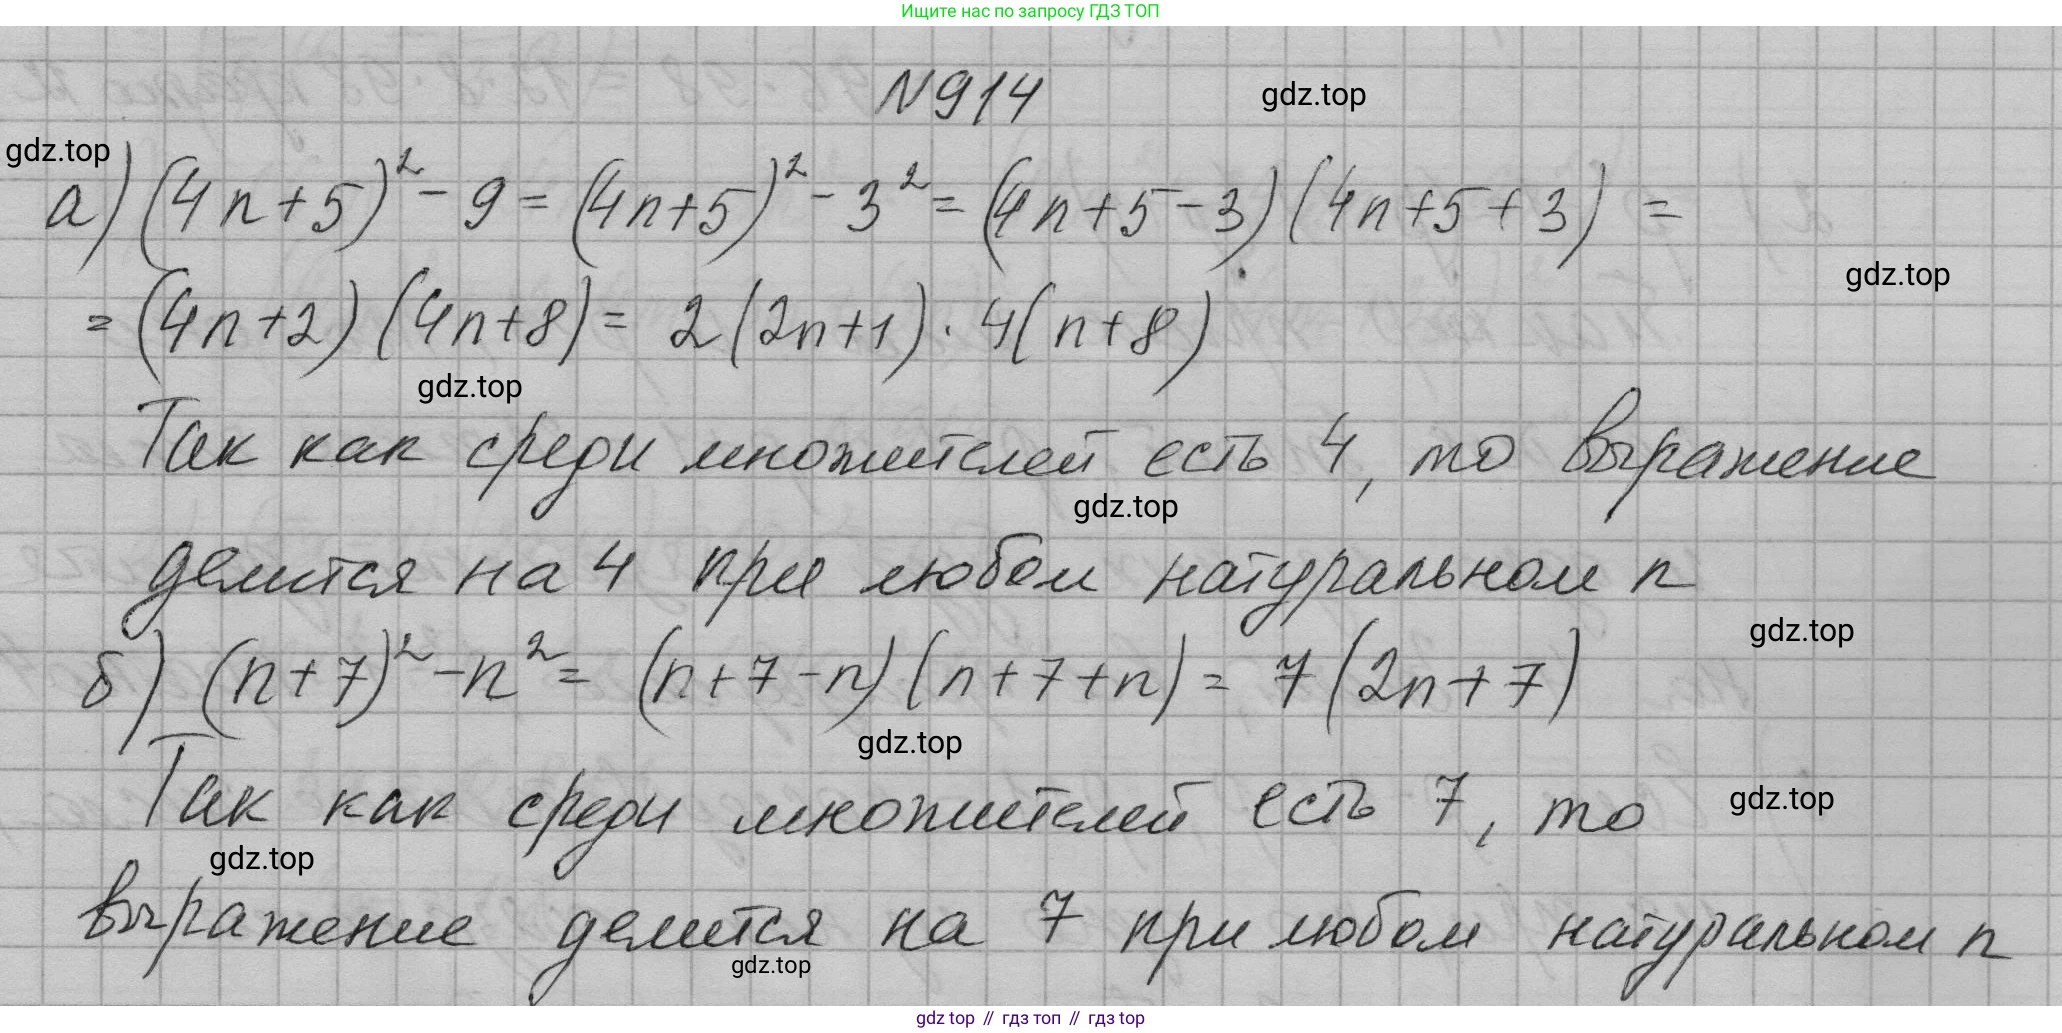 Ищите нас по запросу ГДЗ ТОП
N914
gdz.top
gdz.top
а) (4n+5)² - 9 = (4n+5)² - 3² = (4n+5-3)(4n+5+3) =
gdz.top
= (4n+2)(4n+8) = 2(2n+1)·4(n+8)
gdz.top
Так как среди множителей есть 4, то выражение
gdz.top
делится на 4 при любом натуральном n
gdz.top
б) (n+7)² - n² = (n+7-n)(n+7+n) = 7(2n+7)
gdz.top
Так как среди множителей есть 7, то
gdz.top
gdz.top
выражение делится на 7 при любом натуральном n
gdz.top
gdz top // гдз топ // gdz top